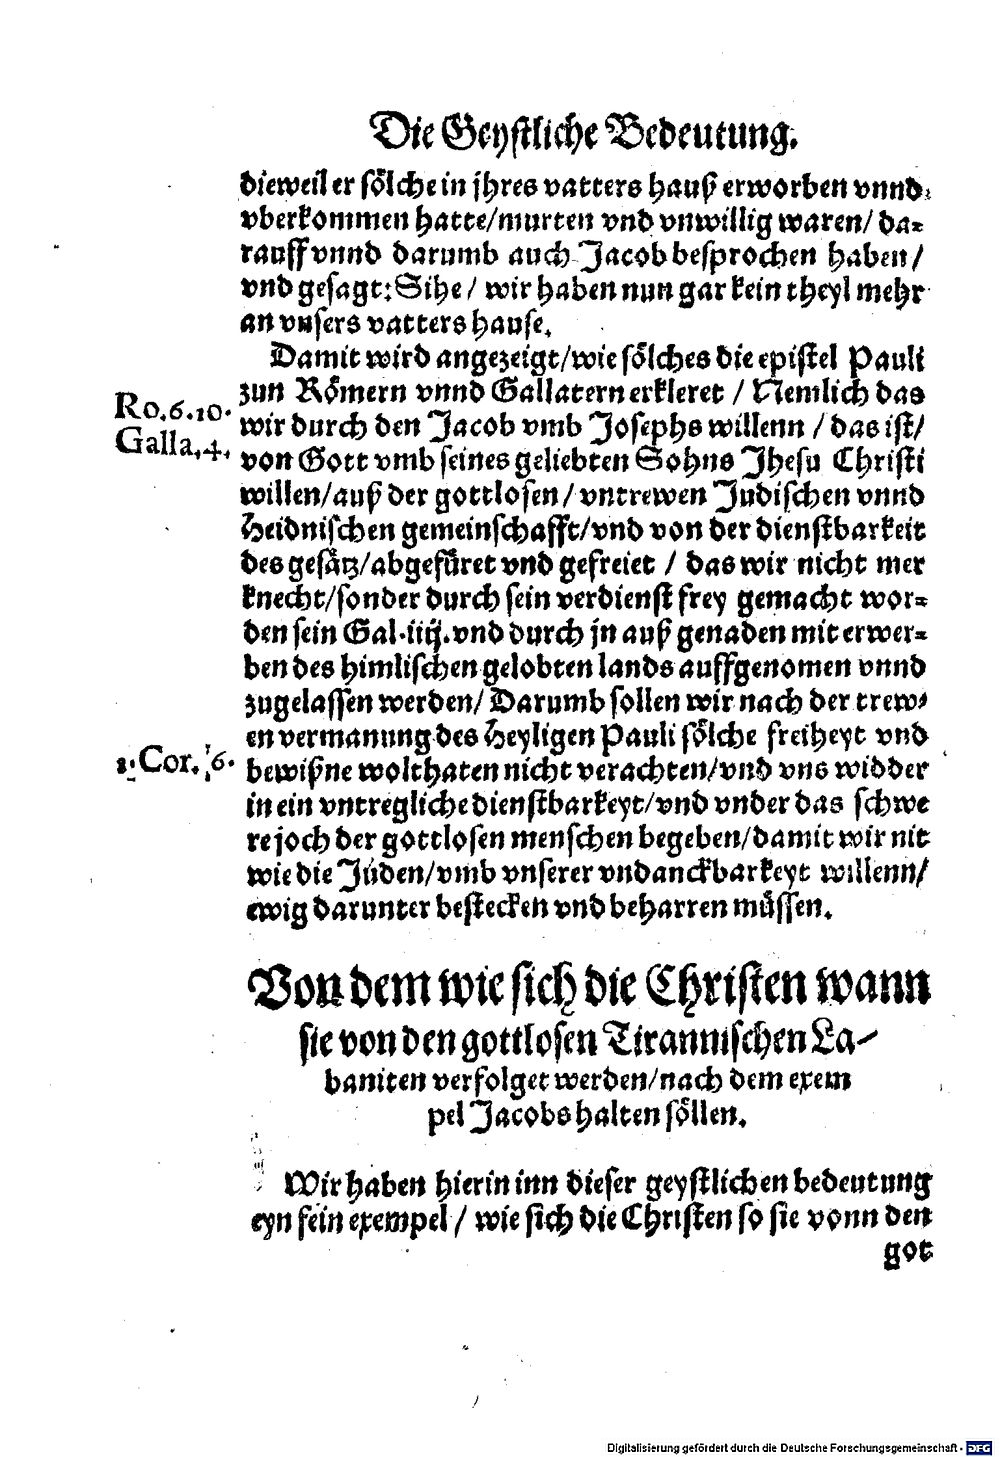 Die Geystliche Bedeutung.
dieweil er sölche in jhres vatters hauß erworben vnnd
vberkommen hatte/murten vnd vnwillig waren/ da⸗
rauff vnnd darumb auch Jacob besprochen haben/
vnd gesagt: Sihe/ wir haben nun gar kein theyl mehr
an vnsers vatters hause.
Damit wird angezeigt/wie sölches die epistel Pauli
zun Römern vnnd Gallatern erkleret / Nemlich das
Ro.6.10.
wir durch den Jacob vmb Josephs willenn / das ist/
Galla.4.
von Gott vmb seines geliebten Sohns Jhesu Christi
willen/auß der gottlosen/ vntrewen Judischen vnnd
Heidnischen gemeinschafft/vnd von der dienstbarkeit
des gesätz/abgefüret vnd gefreiet / das wir nicht mer
knecht/sonder durch sein verdienst frey gemacht wor⸗
den sein Gal.iiij.vnd durch jn auß genaden mit erwer⸗
ben des himlischen gelobten lands auffgenomen vnnd
zugelassen werden/ Darumb sollen wir nach der trew⸗
en vermanung des Heyligen Pauli sölche freiheyt vnd
1.Cor. 6.
bewißne wolthaten nicht verachten/vnd vns widder
in ein vntregliche dienstbarkeyt/vnd vnder das schwe
re joch der gottlosen menschen begeben/damit wir nit
wie die Júden/vmb vnserer vndanckbarkeyt willenn/
ewig darunter bestecken vnd beharren müssen.
Von dem wie sich die Christen wann
sie von den gottlosen Tirannischen La⸗
baniten verfolget werden/nach dem exem
pel Jacobs halten söllen.
Wir haben hierin inn dieser geystlichen bedeutung
eyn fein exempel/ wie sich die Christen so sie vonn den
got
Digitalisierung gefördert durch die Deutsche Forschungsgemeinschaft - DFG